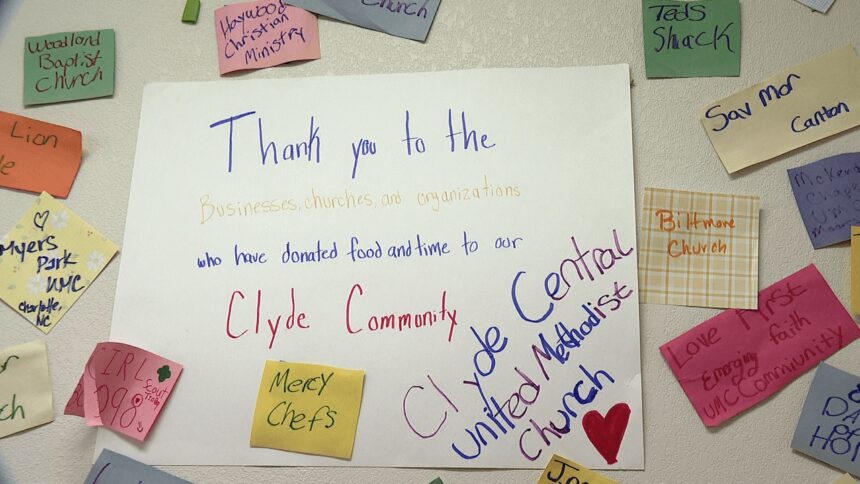 Woodland
Baptist
Church
Haywood
Christian
Ministry
Church
Teds
Shack
Sav Mor
Canton
Lion
Thank you to the
Businesses, churches, and organizations
who have donated food and time to our
Clyde Community
Clyde Central
United Methodist
Church
Biltmore
Church
Myers
Park
UMC
Charlotte,
NC
Love First
Emerging faith
UMC Community
GIRL
Scout
Troop
Mercy
Chefs